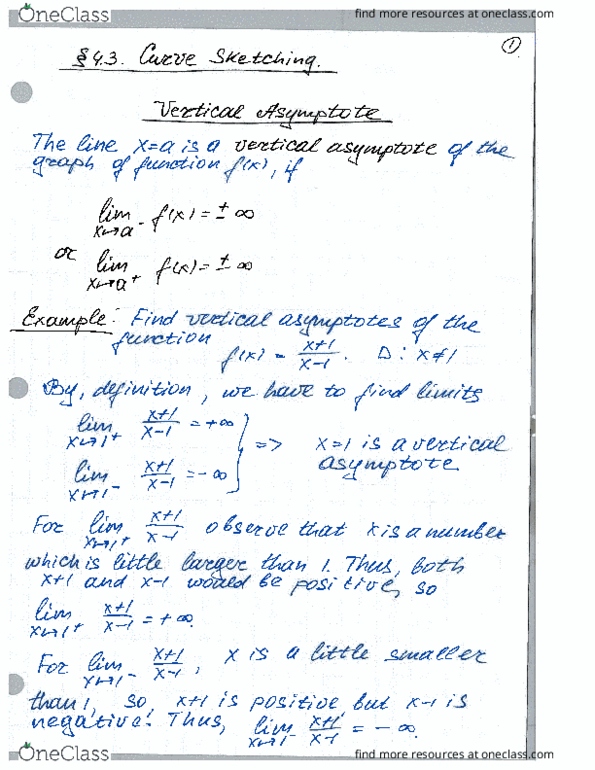 OneClass
find more resources at oneclass.com
①
§ 4.3. Curve Sketching.
Vertical Asymptote
The line x=a is a vertical asymptote of the
graph of function f(x), if
lim x→a⁻ f(x) = ± ∞
or
lim x→a⁺ f(x) = ± ∞
Example: Find vertical asymptotes of the
function f(x) = (x+1)/(x-1). D: x≠1
By, definition, we have to find limits
lim x→1⁺ (x+1)/(x-1) = +∞
lim x→1⁻ (x+1)/(x-1) = -∞
=> x=1 is a vertical
asymptote
For lim x→1⁺ (x+1)/(x-1) observe that x is a number
which is little larger than 1. Thus, both
x+1 and x-1 would be positive, so
lim x→1⁺ (x+1)/(x-1) = +∞.
For lim x→1⁻ (x+1)/(x-1), x is a little smaller
than 1, so, x+1 is positive but x-1 is
negative. Thus, lim x→1⁻ (x+1)/(x-1) = -∞.
OneClass
find more resources at oneclass.com